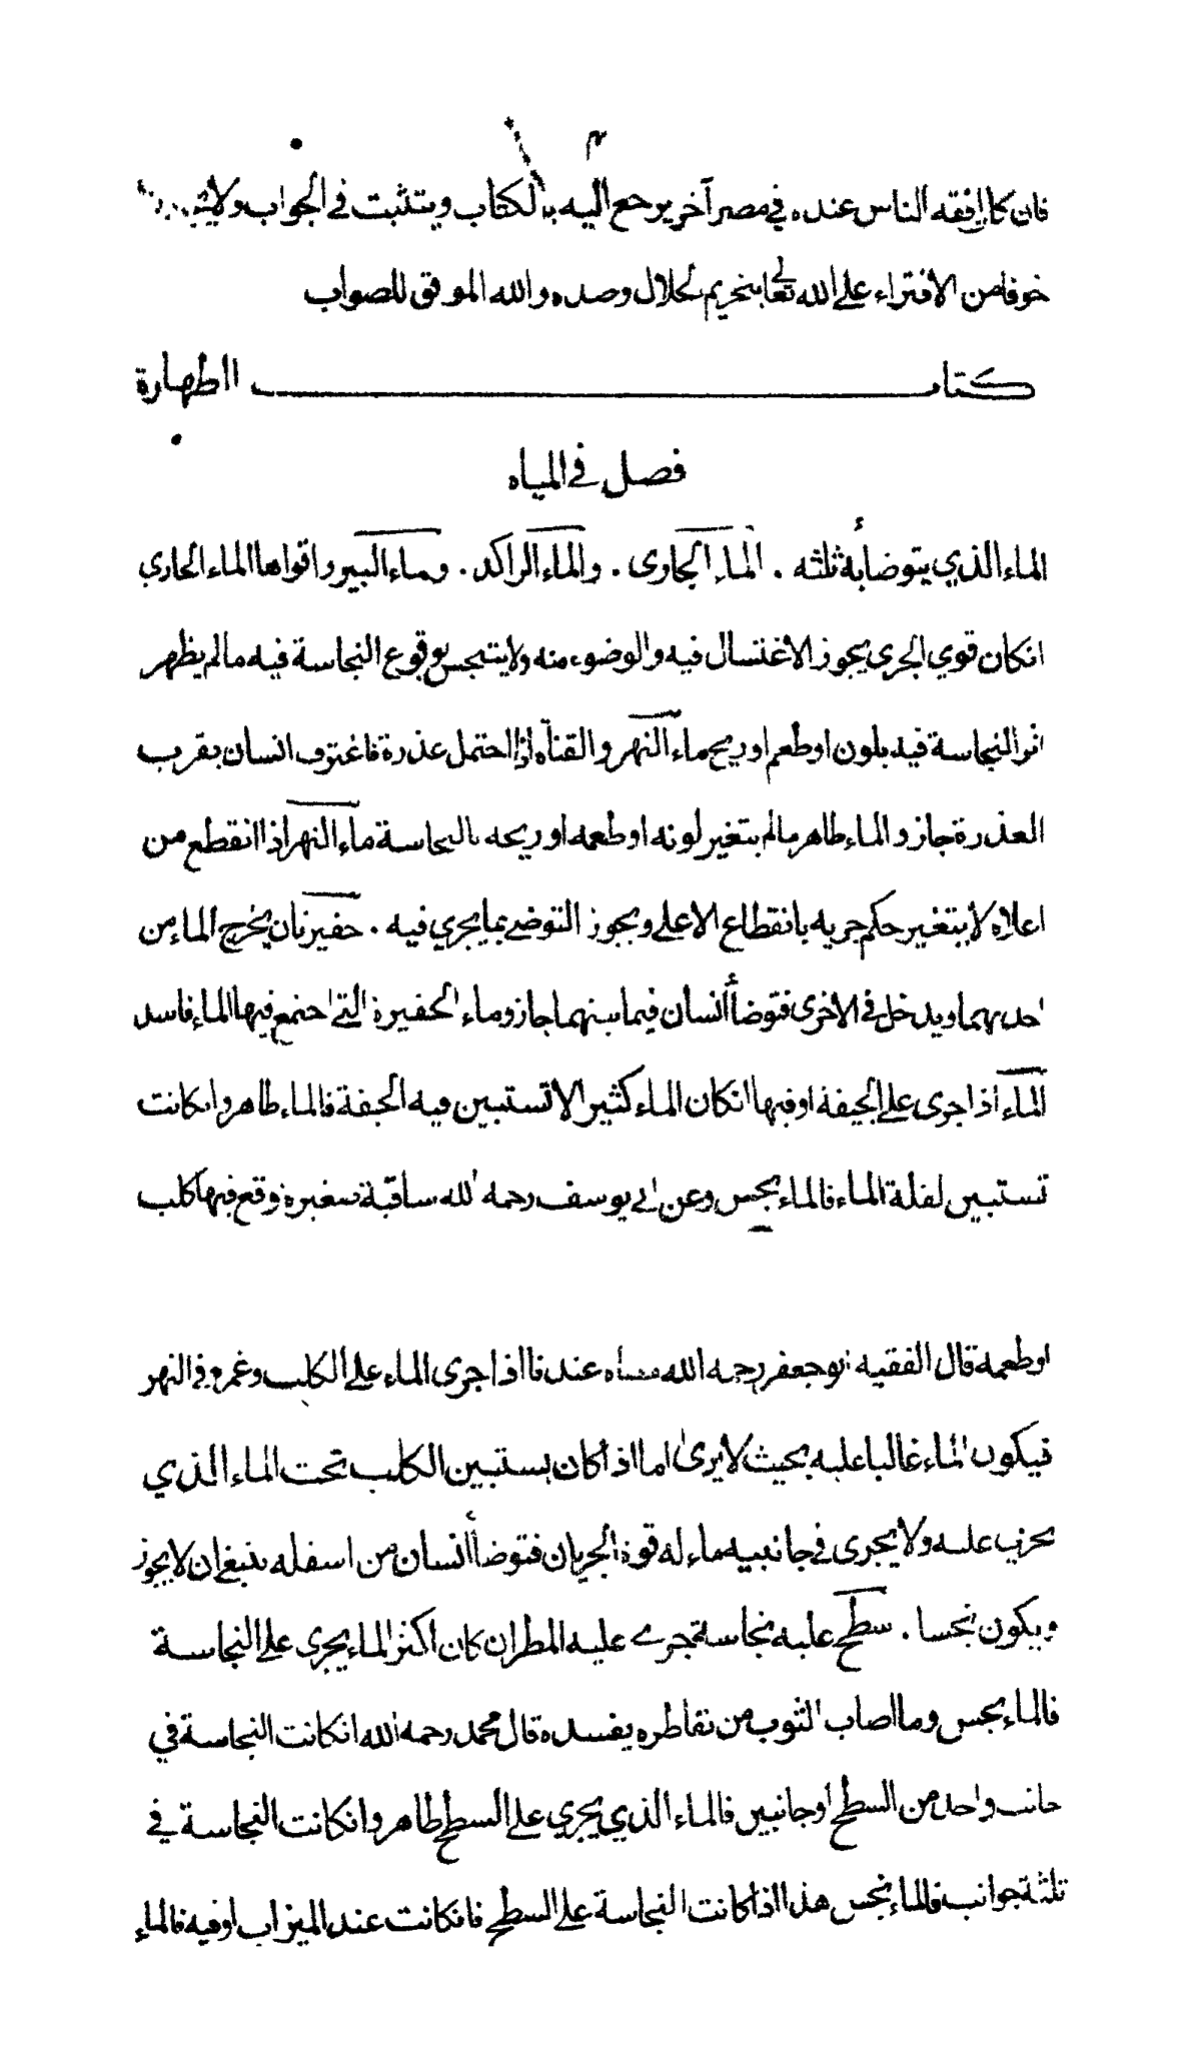 فان كان افقه الناس عنده في مصر آخر يرجع اليه بالكتاب ويتثبت في الجواب ولا
خوفا من الافتراء على الله تعالى بتحريم الحلال وضده والله الموفق للصواب
كتاب الطهارة
فصل في المياه
الماء الذي يتوضأ به ثلثه . الماء الجارى . والماء الراكد . وماء البير واقواها الماء الجاري
انكان قوي الجرى يجوز الاغتسال فيه والوضوء منه ولا يتنجس بوقوع النجاسة فيه مالم يظهر
اثر النجاسة فيه بلون او طعم او ريح ماء النهر والقناة اذا احتمل عذرة فاغترف انسان بقرب
العذرة جاز والماء طاهر مالم يتغير لونه او طعمه او ريحه بالنجاسة ماء النهر اذا انقطع من
اعلاه لا يتغير حكم جريه بانقطاع الاعلى ويجوز التوضي بما يجري فيه . حفيرتان يخرج الماء من
احديهما ويدخل في الاخرى فتوضأ انسان فيما بينهما جاز وماء الحفيرة التي اجتمع فيها الماء فاسد
الماء اذا جرى على الجيفة او فيها انكان الماء كثيرا لا تستبين فيه الجيفة فالماء طاهر وانكانت
تستبين لقلة الماء فالماء نجس وعن ابي يوسف رحمه الله ساقية صغيرة وقع فيها كلب
او طعمه قال الفقيه ابو جعفر رحمه الله معناه عندنا اذا جرى الماء على الكلب وغمر وفي النهر
فيكون الماء غالبا عليه بحيث لا يرى اما اذا كان يستبين الكلب تحت الماء الذي
يجري عليه ولا يجرى في جانبيه ماء له قوة الجريان فتوضأ انسان من اسفله ينبغي ان لا يجوز
ويكون نجسا . سطح عليه نجاسة تجرى عليه المطر ان كان اكثر الماء يجرى على النجاسة
فالماء نجس وما اصاب الثوب من تقاطره يفسده قال محمد رحمه الله انكانت النجاسة في
جانب واحد من السطح او جانبين فالماء الذي يجري على السطح طاهر وانكانت النجاسة في
ثلثة جوانب فالماء نجس هذا اذا كانت النجاسة على السطح فانكانت عند الميزاب او فيه فالماء